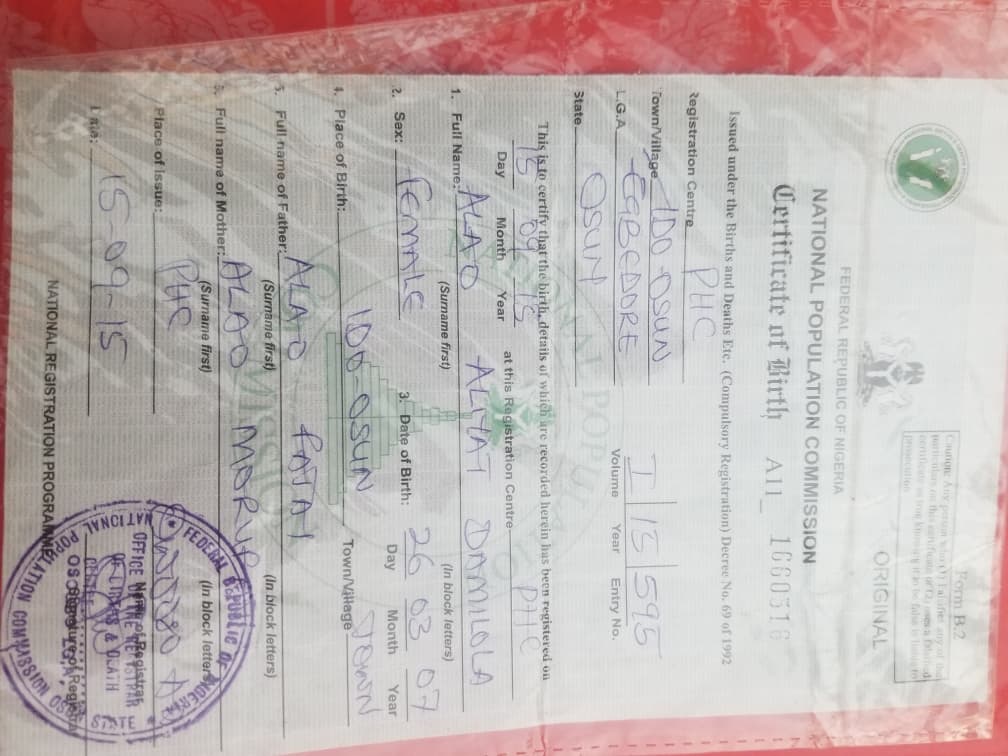 Form B.2
Caution: Any person who (1) falsifies any of the
particulars on this certificate or (2) uses a falsified
certificate as true knowing it to be false is liable to
prosecution
ORIGINAL
FEDERAL REPUBLIC OF NIGERIA
NATIONAL POPULATION COMMISSION
Certificate of Birth A11_ 1660316
Issued under the Births and Deaths Etc. (Compulsory Registration) Decree No. 69 of 1992
Registration Centre PHC
Town/Village IDO OSUN
L.G.A EGBEDORE
I 15 595
Volume Year Entry No.
State OSUN
This is to certify that the birth, details of which are recorded herein has been registered on
15 09 15 at this Registration Centre PHC
Day Month Year
1. Full Name: ALAO ALIYAT DAMILOLA
(Surname first) (In block letters)
2. Sex: FEMALE 3. Date of Birth: 26 03 07
Day Month Year
4. Place of Birth: IDO-OSUN Town/Village TOWN
5. Full name of Father: ALAO FATAI
(Surname first) (In block letters)
6. Full name of Mother: ALAO
(Surname first) (In block letters)
Place of Issue: PHC
Name of Registrar
Date: 15-09-15
Signature of Registrar
NATIONAL REGISTRATION PROGRAMME
FEDERAL REPUBLIC OF NIGERIA
NATIONAL POPULATION COMMISSION
OSUN STATE